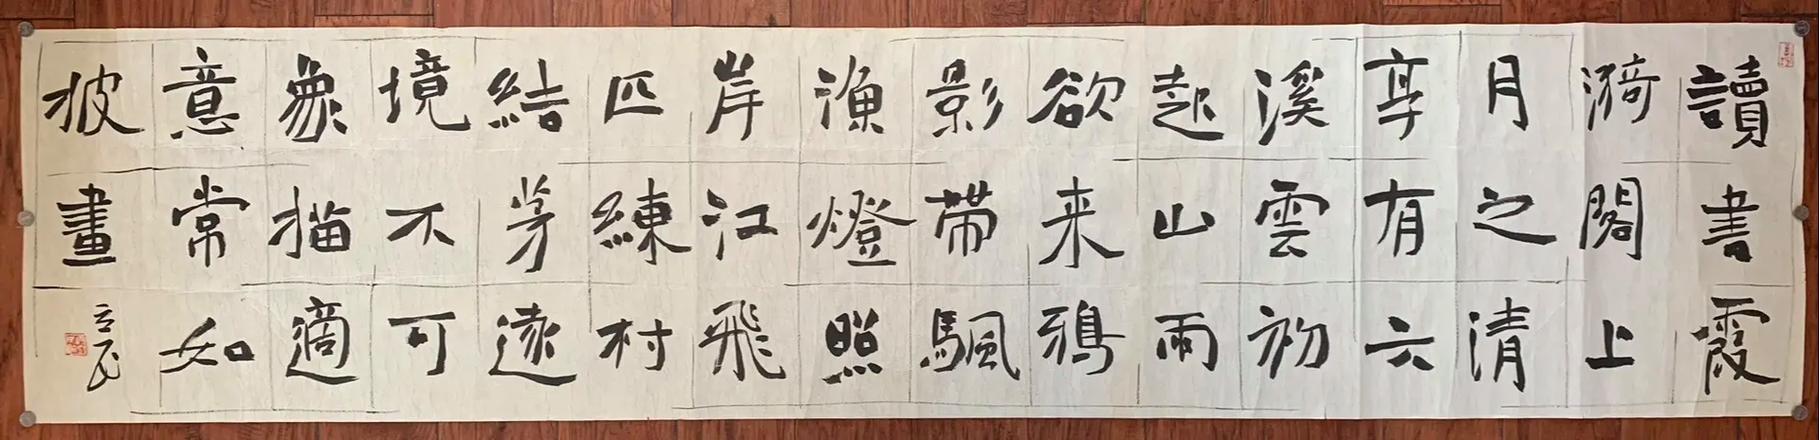 讀書霞
漪閣上
月之清
享有六
溪雲初
起山雨
欲来鴉
影帶颿
漁燈照
岸江飛
匹練村
結茅遠
境不可
象描適
意常如
披畫